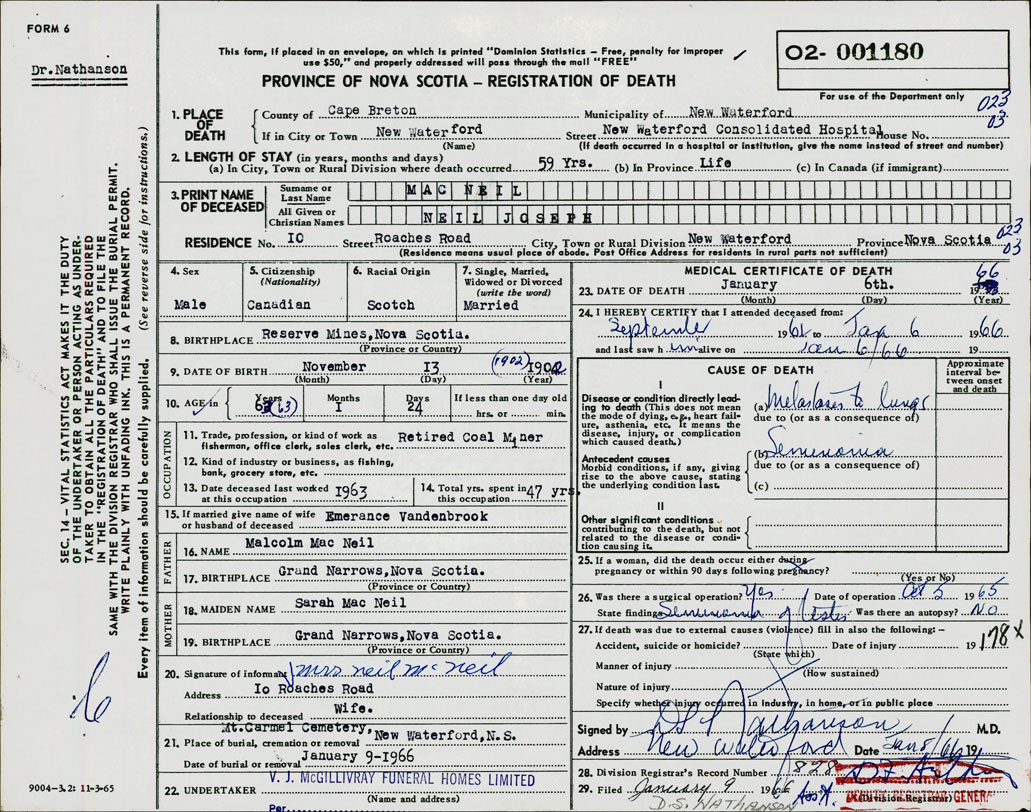 FORM 6
Dr.Nathanson
This form, if placed in an envelope, on which is printed "Dominion Statistics – Free, penalty for improper
use $50," and properly addressed will pass through the mail "FREE"
PROVINCE OF NOVA SCOTIA – REGISTRATION OF DEATH
02- 001180
For use of the Department only
023
03
1. PLACE OF DEATH
County of Cape Breton Municipality of New Waterford
If in City or Town New Waterford Street New Waterford Consolidated Hospital House No.
(Name) (If death occurred in a hospital or institution, give the name instead of street and number)
2. LENGTH OF STAY (in years, months and days)
(a) In City, Town or Rural Division where death occurred 59 Yrs. (b) In Province Life (c) In Canada (if immigrant)
3. PRINT NAME OF DECEASED
Surname or Last Name MAC NEIL
All Given or Christian Names NEIL JOSEPH
RESIDENCE No. IO Street Roaches Road City, Town or Rural Division New Waterford Province Nova Scotia
023
03
(Residence means usual place of abode. Post Office Address for residents in rural parts not sufficient)
4. Sex
Male
5. Citizenship
(Nationality)
Canadian
6. Racial Origin
Scotch
7. Single, Married,
Widowed or Divorced
(write the word)
Married
8. BIRTHPLACE Reserve Mines,Nova Scotia.
(Province or Country)
9. DATE OF BIRTH November I3 (1902) 1902
(Month) (Day) (Year)
10. AGE in Years 63 (63) Months I Days 24 If less than one day old
hrs. or min.
OCCUPATION
11. Trade, profession, or kind of work as
fisherman, office clerk, sales clerk, etc. Retired Coal Miner
12. Kind of industry or business, as fishing,
bank, grocery store, etc.
13. Date deceased last worked
at this occupation 1963
14. Total yrs. spent in
this occupation 47 yrs.
15. If married give name of wife
or husband of deceased Emerance Vandenbrook
FATHER
16. NAME Malcolm Mac Neil
17. BIRTHPLACE Grand Narrows,Nova Scotia.
(Province or Country)
MOTHER
18. MAIDEN NAME Sarah Mac Neil
19. BIRTHPLACE Grand Narrows,Nova Scotia.
(Province or Country)
20. Signature of informant Mrs Neil McNeil
Address Io Roaches Road
Relationship to deceased Wife.
21. Place of burial, cremation or removal Mt.Carmel Cemetery, New Waterford,N.S.
Date of burial or removal January 9-1966
V. J. McGILLIVRAY FUNERAL HOMES LIMITED
22. UNDERTAKER
(Name and address)
Per
MEDICAL CERTIFICATE OF DEATH
23. DATE OF DEATH January 6th. 19 66
(Month) (Day) (Year)
24. I HEREBY CERTIFY that I attended deceased from:
September 1961 to Jan 6 1966
and last saw him alive on Jan 6/66 19
CAUSE OF DEATH
Approximate
interval be-
tween onset
and death
I
Disease or condition directly lead-
ing to death (This does not mean
the mode of dying, e.g., heart fail-
ure, asthenia, etc. It means the
disease, injury, or complication
which caused death.)
(a) Metastases to lungs
due to (or as a consequence of)
Antecedent causes
Morbid conditions, if any, giving
rise to the above cause, stating
the underlying condition last.
(b) Seminoma
due to (or as a consequence of)
(c)
II
Other significant conditions
contributing to the death, but not
related to the disease or condi-
tion causing it.
25. If a woman, did the death occur either during
pregnancy or within 90 days following pregnancy?
(Yes or No)
26. Was there a surgical operation? Yes Date of operation Oct 5 1965
State findings Seminoma of testes Was there an autopsy? NO
27. If death was due to external causes (violence) fill in also the following: –
178X
Accident, suicide or homicide? Date of injury 19
(State which)
Manner of injury
(How sustained)
Nature of injury
Specify whether injury occurred in Industry, in home, or in public place
Signed by D S Nathanson M.D.
Address New Waterford Date Jan 8/66 19
28. Division Registrar's Record Number 828
29. Filed January 9 1966
Division Registrar
DEPUTY REGISTRAR GENERAL
D.S. NATHANSON
SEC. 14 – VITAL STATISTICS ACT MAKES IT THE DUTY
OF THE UNDERTAKER OR PERSON ACTING AS UNDER-
TAKER TO OBTAIN ALL THE PARTICULARS REQUIRED
IN THE "REGISTRATION OF DEATH" AND TO FILE THE
SAME WITH THE DIVISION REGISTRAR WHO SHALL ISSUE THE BURIAL PERMIT.
WRITE PLAINLY WITH UNFADING INK. THIS IS A PERMANENT RECORD.
Every item of information should be carefully supplied. (See reverse side for instructions.)
9004-3.2: 11-3-65